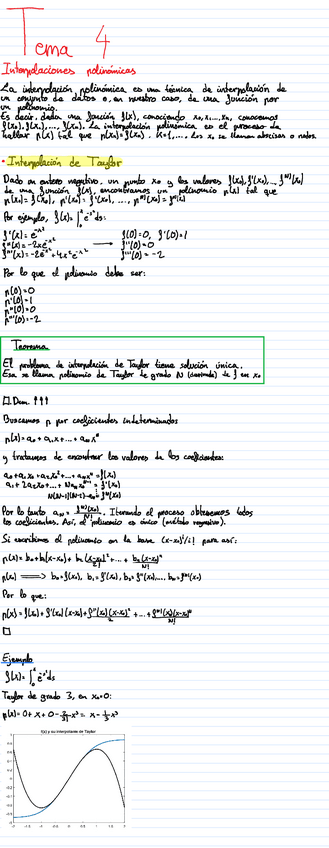 Tema 4
Interpolaciones polinómicas
La interpolación polinómica, es una técnica de interpolación de
un conjunto de datos o, en nuestro caso, de una función por
un polinomio.
Es decir, dada una función f(x), conociendo x₀, x₁, ..., xₙ, conocemos
f(x₀), f(x₁), ..., f(xₙ). La interpolación polinómica es el proceso de
hallar p(x) tal que p(xₖ)=f(xₖ). K=1, ... Los xₖ se llaman abscisas o nodos.
• Interpolación de Taylor
Dado un entero negativo, un punto x₀ y los valores f(x₀), f'(x₀), ..., f^(N)(x₀)
de una función f(x), encontramos un polinomio p(x) tal que
p(x₀) = f(x₀), p'(x₀) = f'(x₀), ..., p^(N)(x₀) = f^(N)(x₀)
Por ejemplo, f(x) = ∫₀ˣ e^(-s²) ds:
f'(x) = e^(-x²)
f(0)=0, f'(0)=1
f''(x) = -2xe^(-x²) ⟶ f''(0)=0
f'''(x) = -2e^(-x²) + 4x²e^(-x²)
f'''(0) = -2
Por lo que el polinomio debe ser:
p(0)=0
p'(0)=1
p''(0)=0
p'''(0)=-2
Teorema
El problema de interpolación de Taylor tiene solución única.
Esa se llama polinomio de Taylor de grado N (derivada) de f en x₀
□ Dem. !!!
Buscamos p por coeficientes indeterminados
p(x) = a₀ + a₁x + ... + aₙxᴺ
y tratamos de encontrar los valores de los coeficientes:
a₀+a₁x₀+a₂x₀²+...+aₙx₀ᴺ = f(x₀)
a₁ + 2a₂x₀+...+ Naₙx₀ᴺ⁻¹ = f'(x₀)
N(N-1)(N-2)...aₙ = f^(N)(x₀)
Por lo tanto aₙ = f^(N)(x₀)/N!. Iterando el proceso obtenemos todos
los coeficientes. Así, el polinomio es único (método regresivo).
Si escribimos el polinomio en la base (x-x₀)ⁱ/i! para así:
p(x) = b₀+b₁(x-x₀) + b₂ (x-x₀)²/2! + ... + bₙ (x-x₀)ᴺ/N!
p(x₀) ⟹ b₀=f(x₀), b₁=f'(x₀), b₂=f''(x₀), ..., bₙ=f^(N)(x₀)
Por lo que:
p(x) = f(x₀) + f'(x₀)(x-x₀) + f''(x₀)(x-x₀)²/2 + ... + f^(N)(x₀)(x-x₀)ᴺ/N!
□
Ejemplo
f(x) = ∫₀ˣ e^(-s²) ds
Taylor de grado 3, en x₀=0:
p(x) = 0 + x + 0 - 2/3! x³ = x - 1/3 x³
f(x) y su interpolante de Taylor